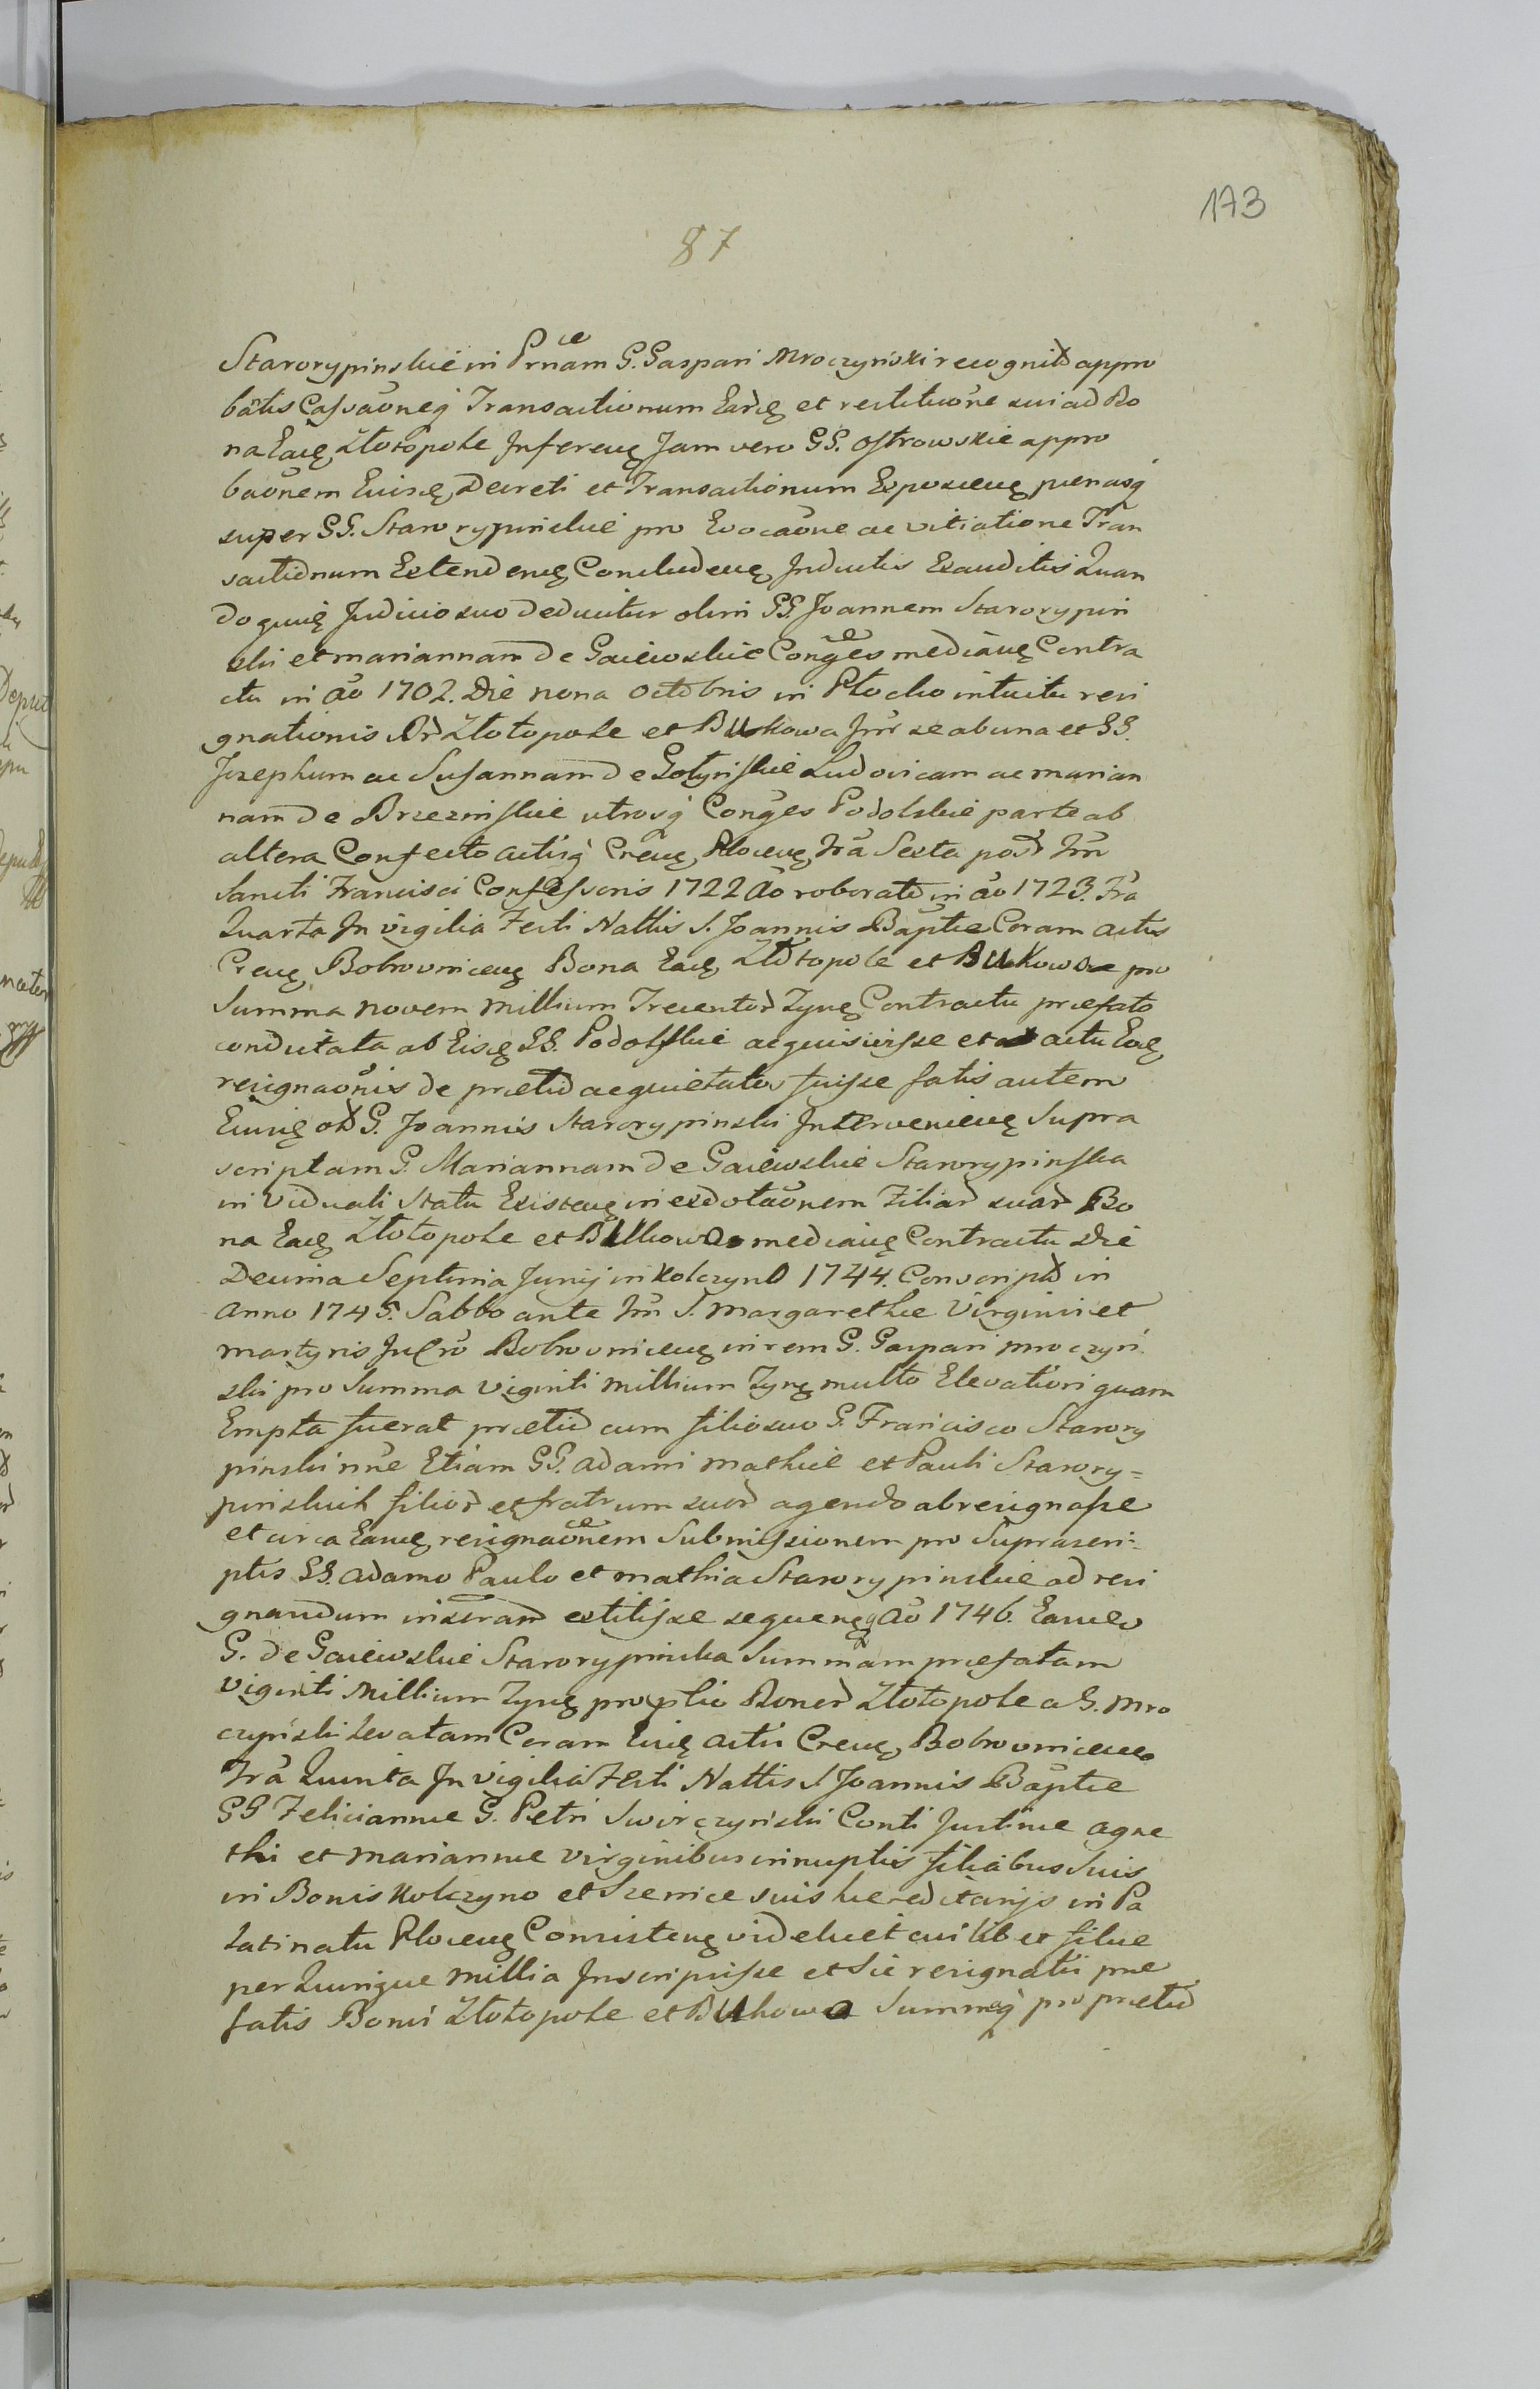 173
87
Starorypinskie in Prnãm G. Gaspari Mroczyński recognitõ appro
bãtis Cassaõneq Transactionum Eardę et restituõne sui ad Bo
na Eadę Złotopole Inferenę Jam vero GG. Ostrowskie appro
baõnem Euisdę Decreti et Transactionum Exposceuę penasq
super GG. Starorypinskie pro Evocaõne ac vitiatione Tran
sactionum Extendenę Concludenę Inductis Exauditis Quan
doquidę Judicio suo deducitur olim GG. Joannem Starorypin
ski et mariannam de Gaiewskie Conges mediãnę Contra
ctu in aõ 1702. Die nona Octobris in Płocko intuitu resi
gnationis Br Złotopole et Bukowa Intr se ab una et GG.
Josephum ac Susannam de Gołyńskie Ludovicam ac marian
nam de Brzezinskie utrosq Conges Podolskie parte ab
altera Confecto actisq Crenę Plocenę fra Sexta post frm
Sancti Francisci Confessoris 1722 aõ roborato in aõ 1723. Fra
Quarta In vigilia Festi Nattis S. Joannis Baptæ Coram actis
Crenę Bobrovnicenę Bona Eadę Złotopole et Bukowa pro
Summa novem millium Trecentor Zynę Contractu præfato
condictata ab Eisdę GG. Podolskie acquisivisse et actu Eadę
resignaõnis de prætio acquietatos fuisse fatis autem
Euisdę olỡ G. Joannis Starorypinski Intervenienę Supra
scriptam G. Mariannam de Gaiewskie Starorypinska
in Viduali Statu Existenę in exdotaõnem Filiar suar Bo
na Eadę Złotopole et Bukowa mediãnę Contractu Die
Decima Septima Junij in Kolczyno 1744. Conscripto in
Anno 1745. Sabbo ante frm S. Margarethæ Virginis et
martyris In Cro Bobrovnicenę in rem G. Gaspari mroczyń
ski pro Summa viginti millium Zynę multo Elevatiori quam
Empta fuerat prætio cum filio suo G. Francisco Starory
pinski nne Etiam GG. Adami Mathiæ et Pauli Starory=
pinskich filior et fratrum suor agendo abresignasse
et circa Eandę resignaõnem Submissionem pro Suprascri=
ptis GG. Adamo Paulo et mathia Starorypinskie ad resi
gnandum insertam extitisse sequenęq aõ 1746. Eande
G. de Gaiewskie Starorypinska Summam præfatam
viginti Millium Zynę pro ptio Bonor Złotopole a G. Mro
czyński levatam Coram Euisdę actis Crenę Bobrovnicene
fra Quinta In vigilia Festi Nattis S Joannis Baptæ
GG Felicianne G. Petri Swirczyński Conti Justinæ Agne
thi et mariannæ virginibus innuptis filiabus Suis
in Bonis Kolczyno et Srenice suis hæreditarijs in Pa
latinatu Plocenę Consistenę videlicet cuilibet filiæ
per Quinque millia Inscripsisse et Sic resignatis præ
fatis Bonis Złotopole et Bukowa Summaq pro prætio